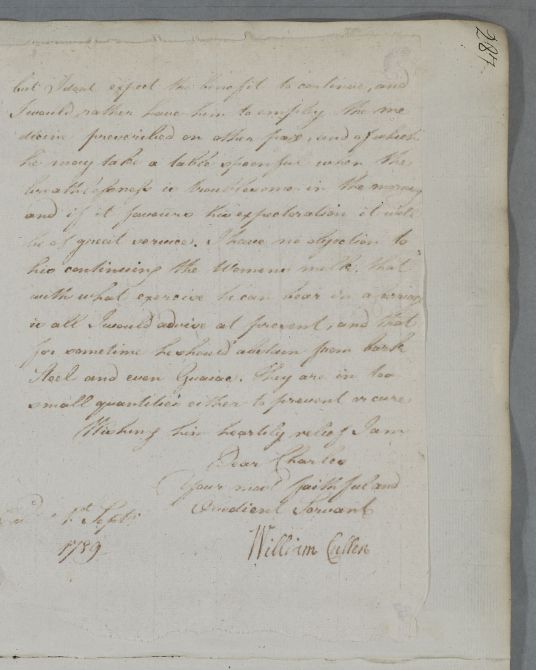 287
but I dont expect the benefit to continue, and
I would rather have him to employ the me
dicine prescribed on other pax, and of which
he may take a table spoonfur when the
breathlesness is troublesome in the morng
and if it favours his expectoration it will
be of great service. I have no objection to
his continuing the Womens milk. that
with what exercise he can bear in a
is all I would advise at present, and that
for sometime he should abstain from bark
Steel and even Guaiac. They are in too
small quantities either to prevent or cure
Wishing him heartily relief I am
Dear Charles
Your most faithful and
Obedient Servant
1st Septr
1789 William Cullen